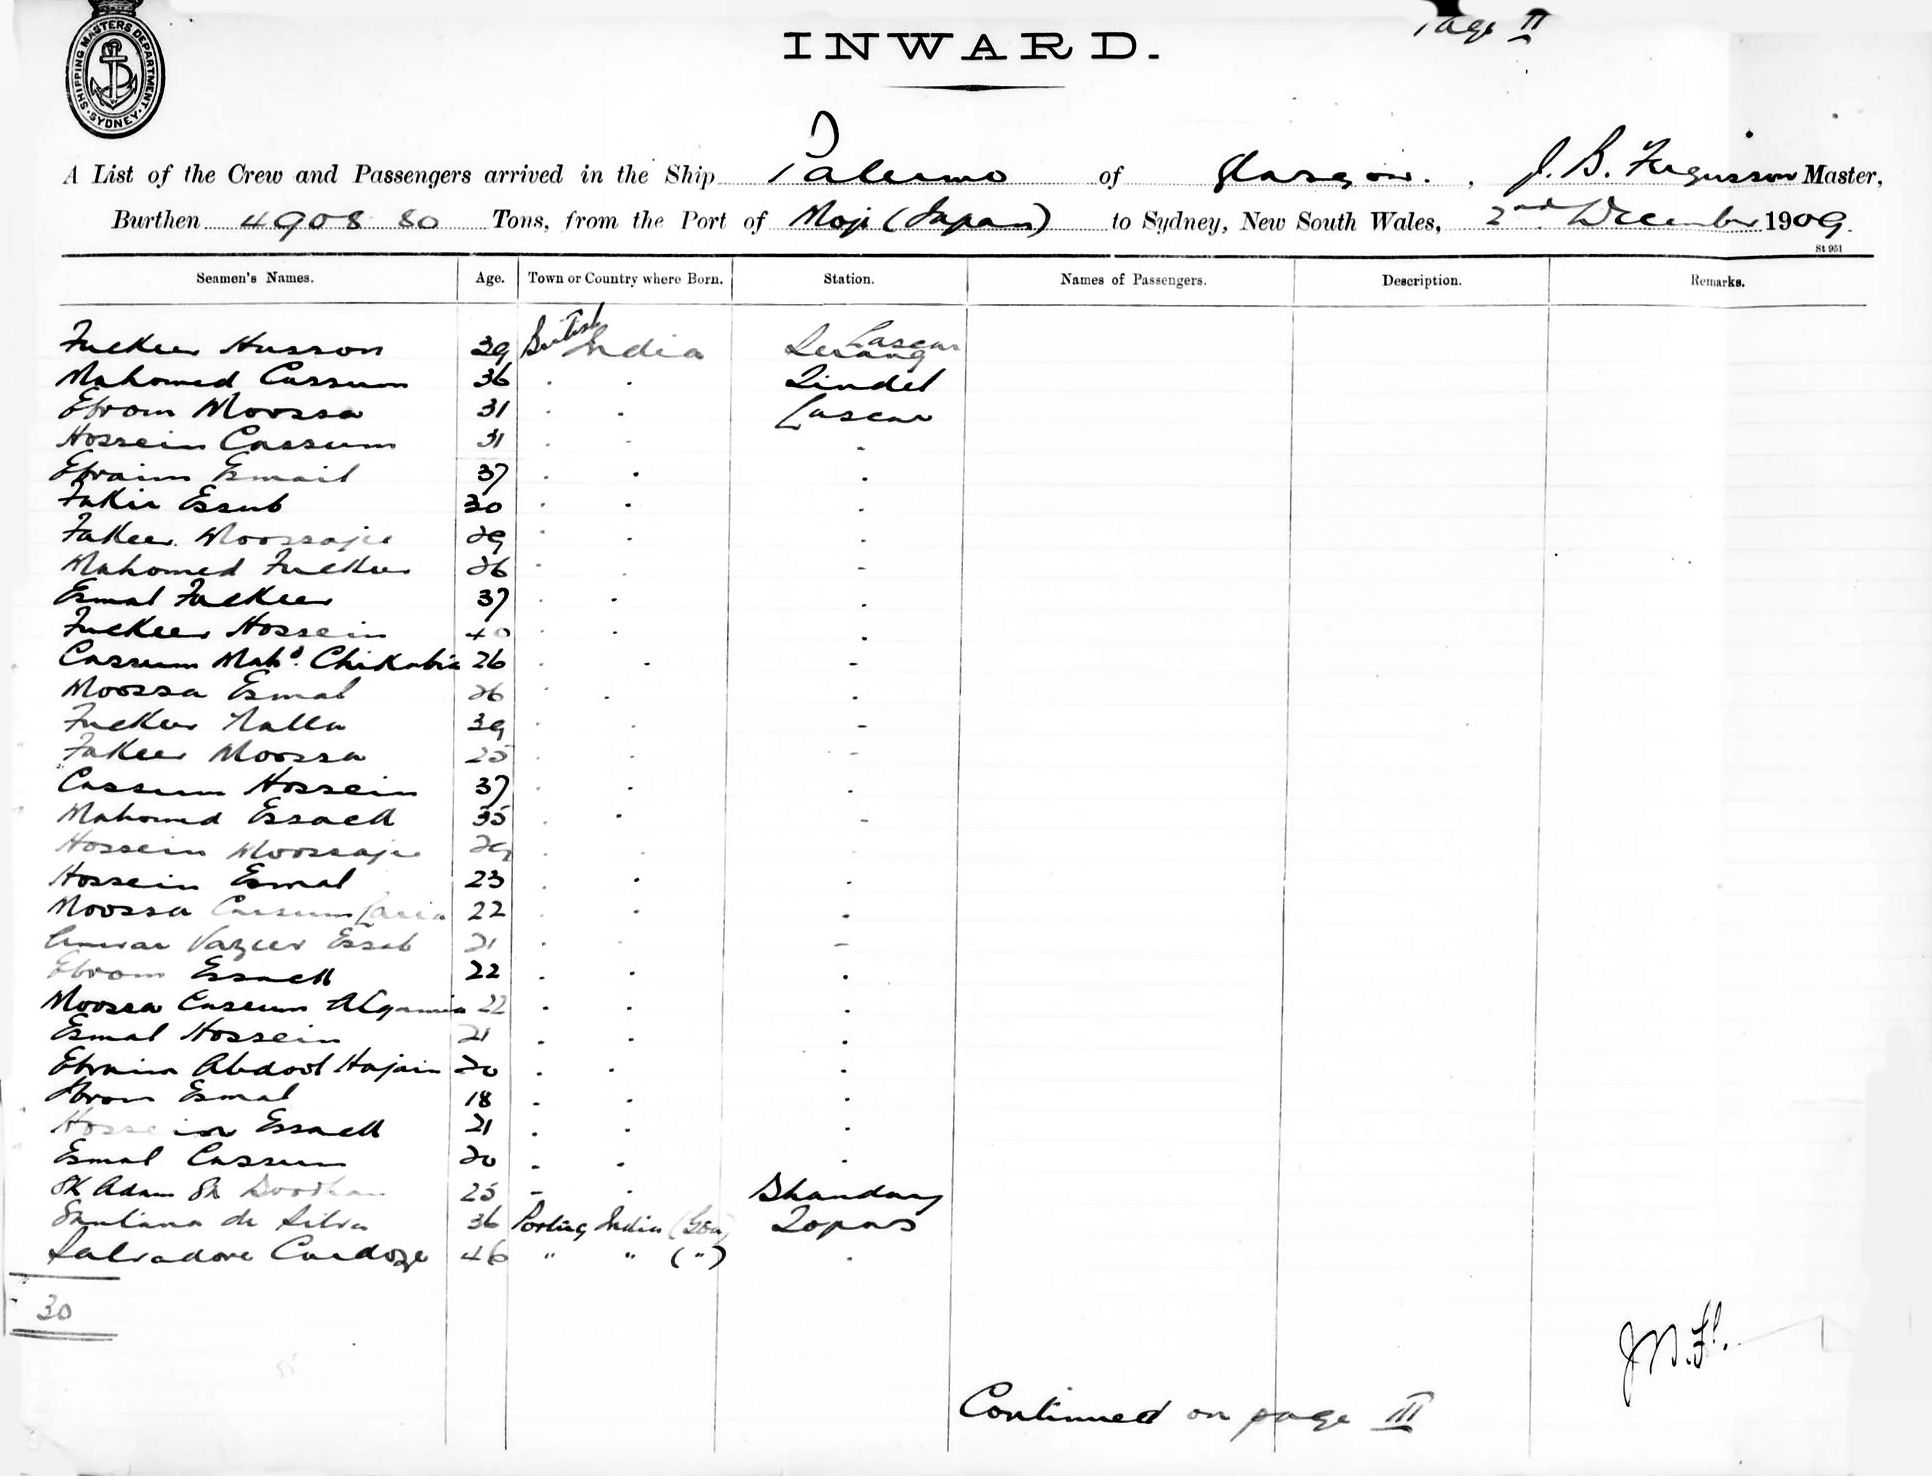 Page II
SHIPPING MASTERS DEPARTMENT · SYDNEY ·
INWARD.
A List of the Crew and Passengers arrived in the Ship Palermo of Glasgow. , J. B. Fergusson Master,
Burthen 4908 80 Tons, from the Port of Moji (Japan) to Sydney, New South Wales, 2nd December 1909.
St 951
Seamen's Names. Age. Town or Country where Born. Station. Names of Passengers. Description. Remarks.
Fuckeer Husson 39 British India Lascar Serang
Mahomed Cassum 36 . . Tindel
Ebrom Moossa 31 . . Lascar
Hossein Cassum 31 . - -
Ebraim Esmail 37 . . .
Fakir Essub 30 . . .
Fakeer Moossajee 29 . . .
Mahomed Fuckeer 26 . . -
Esmal Fuckeer 37 . . .
Fuckeer Hossein 40 . . .
Cassum Mahd. Chikabia 26 . . -
Moossa Esmal 26 . . .
Fuckeer Nalla 39 . . -
Fakeer Moossa 25 . . -
Cassum Hossein 37 . . .
Mahomed Essack 35 . . -
Hossein Moossajee 29 . .
Hossein Esmal 23 . . .
Moossa Cassum 22 . . .
Vazeer Essab 21 . . -
Ebrom Essack 22 . . .
Moossa Cassum 22 . . .
Esmal Hossein 21 . . .
Ebraim Abdool Hajain 20 . . .
Ebrom Esmal 18 . . .
Hossein Essack 21 . . .
Esmal Cassum 20 . . .
Sk Adam Sk Doodhan 25 - . Bhandary
Santana de Silva 36 Portug India (Goa) Topas
Salvadore Cardoze 46 " " (") .
30
J.B.F.
Continued on page III